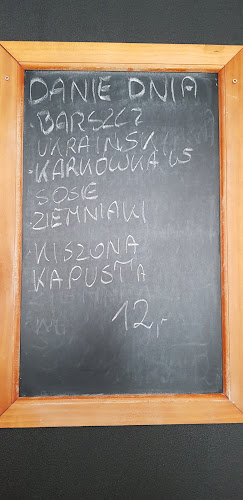 DANIE DNIA
·BARSZCZ
UKRAIŃSKI
·KARKÓWKA W
SOSIE
ZIEMNIAKI
·KISZONA
KAPUSTA
12,-